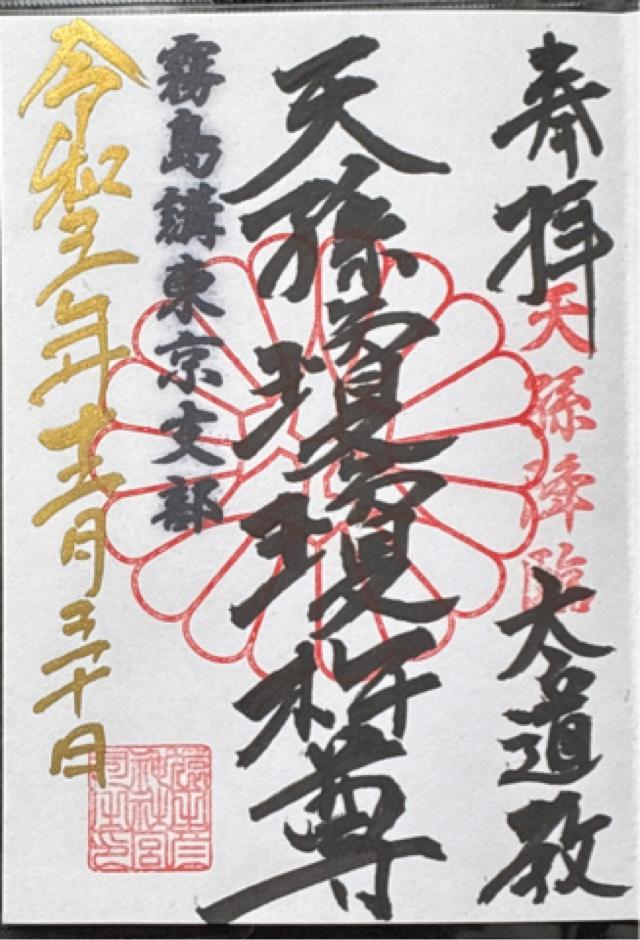 奉拝
天孫降臨
道教
天孫瓊瓊杵尊
霧島講東京支部
令和三年十二月三十日